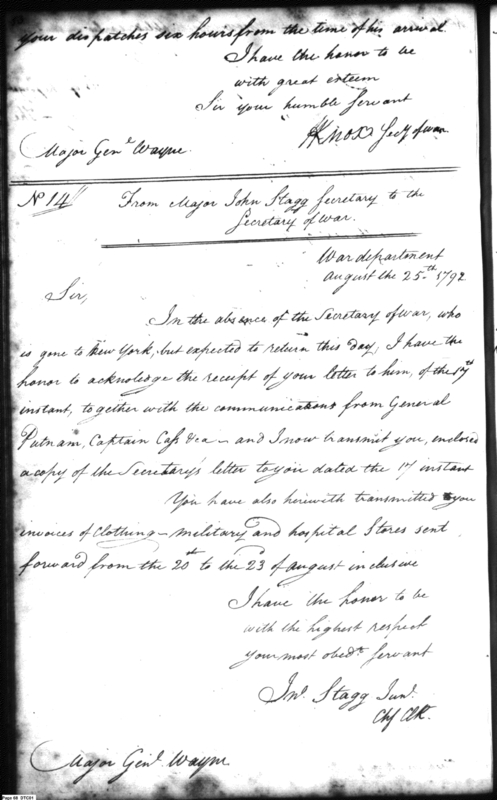 your dispatches six hours from the time of his arrival
I have the honor to be
with great esteem
Sir your humble Servant
HKnox Secy of war
Major Genl Wayne
No 14
From Major John Stagg Secretary to the
Secretary of war.
War department
August the 25th 1792
Sir,
In the absence of the Secretary of war, who
is gone to New York, but expected to return this day, I have the
honor to acknoledge the receipt of your letter to him, of the 17th
instant, together with the communications from General
Putnam, Captain Cass &ca — and I now transmit you, enclosed
a copy of the Secretary's letter to you dated the 17 instant
You have also herewith transmitted you
invoices of Clothing — military and hospital Stores sent
forward from the 20th to the 23 of august inclusive
I have the honor to be
with the highest respect
your most obedt Servant
Jno. Stagg Junr.
Chf Clk.
Major Genl. Wayne
Page 68 DTC01